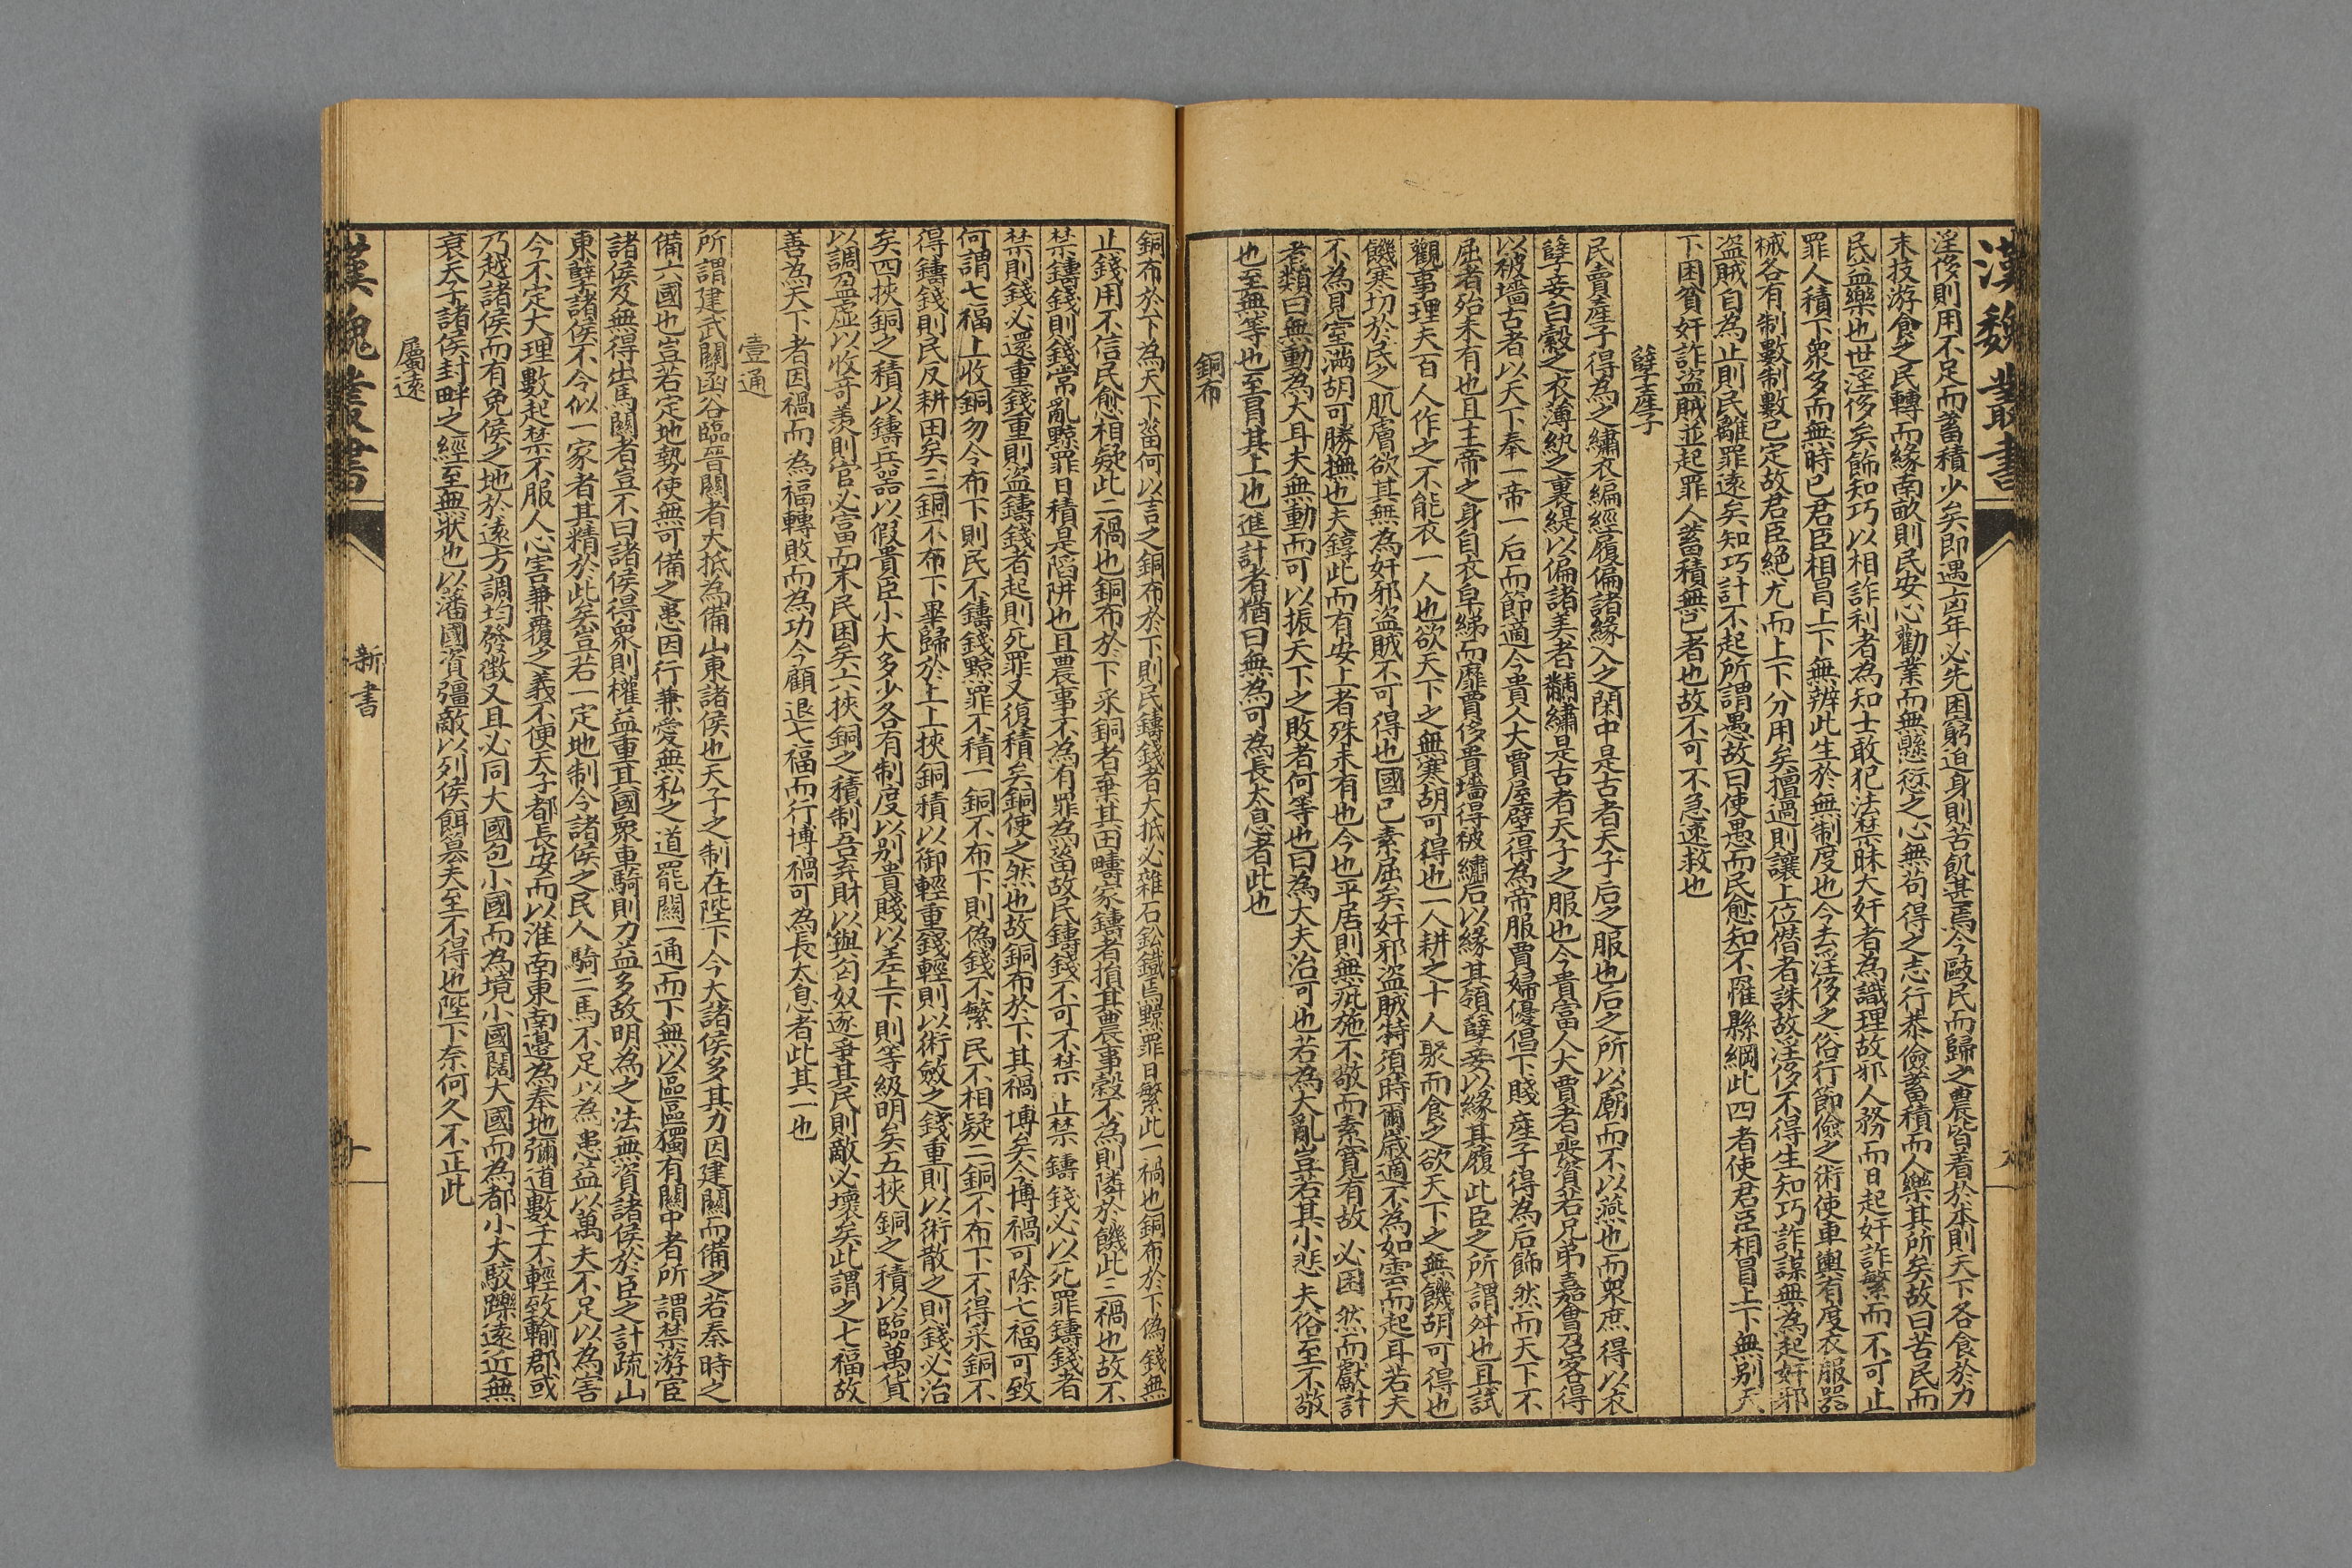 漢魏叢書
淫侈則用不足而蓄積少矣即遇凶年必先困窮迫身則苦飢甚焉今敺民而歸之農皆着於本則天下各食於力
末技游食之民轉而緣南畝則民安心勸業而無懸愆之心無苟得之志行恭儉蓄積而人樂其所矣故曰苦民而
民益樂也世淫侈矣飾知巧以相詐利者為知士敢犯法禁昧大奸者為識理故邪人務而日起奸詐繁而不可止
罪人積下衆多而無時已君臣相冒上下無辨此生於無制度也今去淫侈之俗行節儉之術使車輿有度衣服器
械各有制數制數已定故君臣絕尤而上下分用矣擅過則讓上位僭者誅故淫侈不得生知巧詐謀無為起奸邪
盜賊自為止則民離罪遠矣知巧計不起所謂愚故曰使愚而民愈知不罹縣網此四者使君臣相冒上下無别天
下困貧奸詐盜賊並起罪人蓄積無已者也故不可不急速救也
孽產子
民賣產子得為之繡衣編經履偏諸緣入之閑中是古者天子后之服也后之所以廟而不以燕也而衆庶得以衣
孽妾白縠之衣薄紈之裏緁以偏諸美者黼繡是古者天子之服也今貴富人大賈者喪資若兄弟嘉會召客得
以被墻古者以天下奉一帝一后而節適今貴人大賈屋壁得為帝服賈婦優倡下賤產子得為后飾然而天下不
屈者殆未有也且主帝之身自衣皁綈而靡賈侈貴墻得被繡后以緣其領孽妾以緣其履此臣之所謂舛也且試
觀事理夫百人作之不能衣一人也欲天下之無寒胡可得也一人耕之十人聚而食之欲天下之無饑胡可得也
饑寒切於民之肌膚欲其無為奸邪盜賊不可得也國已素屈矣奸邪盜賊特須時爾歲適不為如雲而起耳若夫
不為見室滿胡可勝撫也夫錞此而有安上者殊未有也今也平居則無疵施不敬而素寬有故必困然而獻計
者類曰無動為大耳夫無動而可以振天下之敗者何等也曰為大夫治可也若為大亂豈若其小悲夫俗至不敬
也至無等也至冒其上也進計者猶曰無為可為長太息者此也
銅布
銅布於下為天下菑何以言之銅布於下則民鑄錢者大抵必雜石鈆鐵焉黥罪日繁此一禍也銅布於下偽錢無
止錢用不信民愈相疑此二禍也銅布於下采銅者棄其田疇家鑄者損其農事穀不為則隣於饑此三禍也故不
禁鑄錢則錢常亂黥罪日積是陷阱也且農事不為有罪為菑故民鑄錢不可不禁止禁鑄錢必以死罪鑄錢者
禁則錢必還重錢重則盜鑄錢者起則死罪又復積矣銅使之然也故銅布於下其禍博矣今博禍可除七福可致
何謂七福上收銅勿令布下則民不鑄錢黥罪不積一銅不布下則偽錢不繁民不相疑二銅不布下不得采銅不
得鑄錢則民反耕田矣三銅不布下畢歸於上上挾銅積以御輕重錢輕則以術斂之錢重則以術散之則錢必治
矣四挾銅之積以鑄兵器以假貴臣小大多少各有制度以别貴賤以差上下則等級明矣五挾銅之積以臨萬貨
以調盈虛以收奇羨則官必富而末民困矣六挾銅之積制吾弃財以與匈奴逐爭其民則敵必壞矣此謂之七福故
善為天下者因禍而為福轉敗而為功今顧退七福而行博禍可為長大息者此其一也
壹通
所謂建武關函谷臨晉關者大抵為備山東諸侯也天子之制在陛下今大諸侯多其力因建關而備之若秦時之
備六國也豈若定地勢使無可備之患因行兼愛無私之道罷關一通而下無以區區獨有關中者所謂禁游宦
諸侯及無得出馬關者豈不曰諸侯得衆則權益重其國衆車騎則力益多故明為之法無資諸侯於臣之計疏山
東孽諸侯不令似一家者其精於此矣豈若一定地制令諸侯之民人騎二馬不足以為患益以萬夫不足以為害
今不定大理數起禁不服人心害兼覆之義不便天子都長安而以淮南東南邊為奉地彌道數千不輕致輸郡或
乃越諸侯而有免侯之地於遠方調均發徵又且必同大國包小國而為境小國闊大國而為都小大駮躒遠近無
衰天子諸侯封畔之經至無狀也以藩國資彊敵以列侯餌篡夫至不得也陛下奈何久不正此
屬遠
漢魏叢書
新書
十